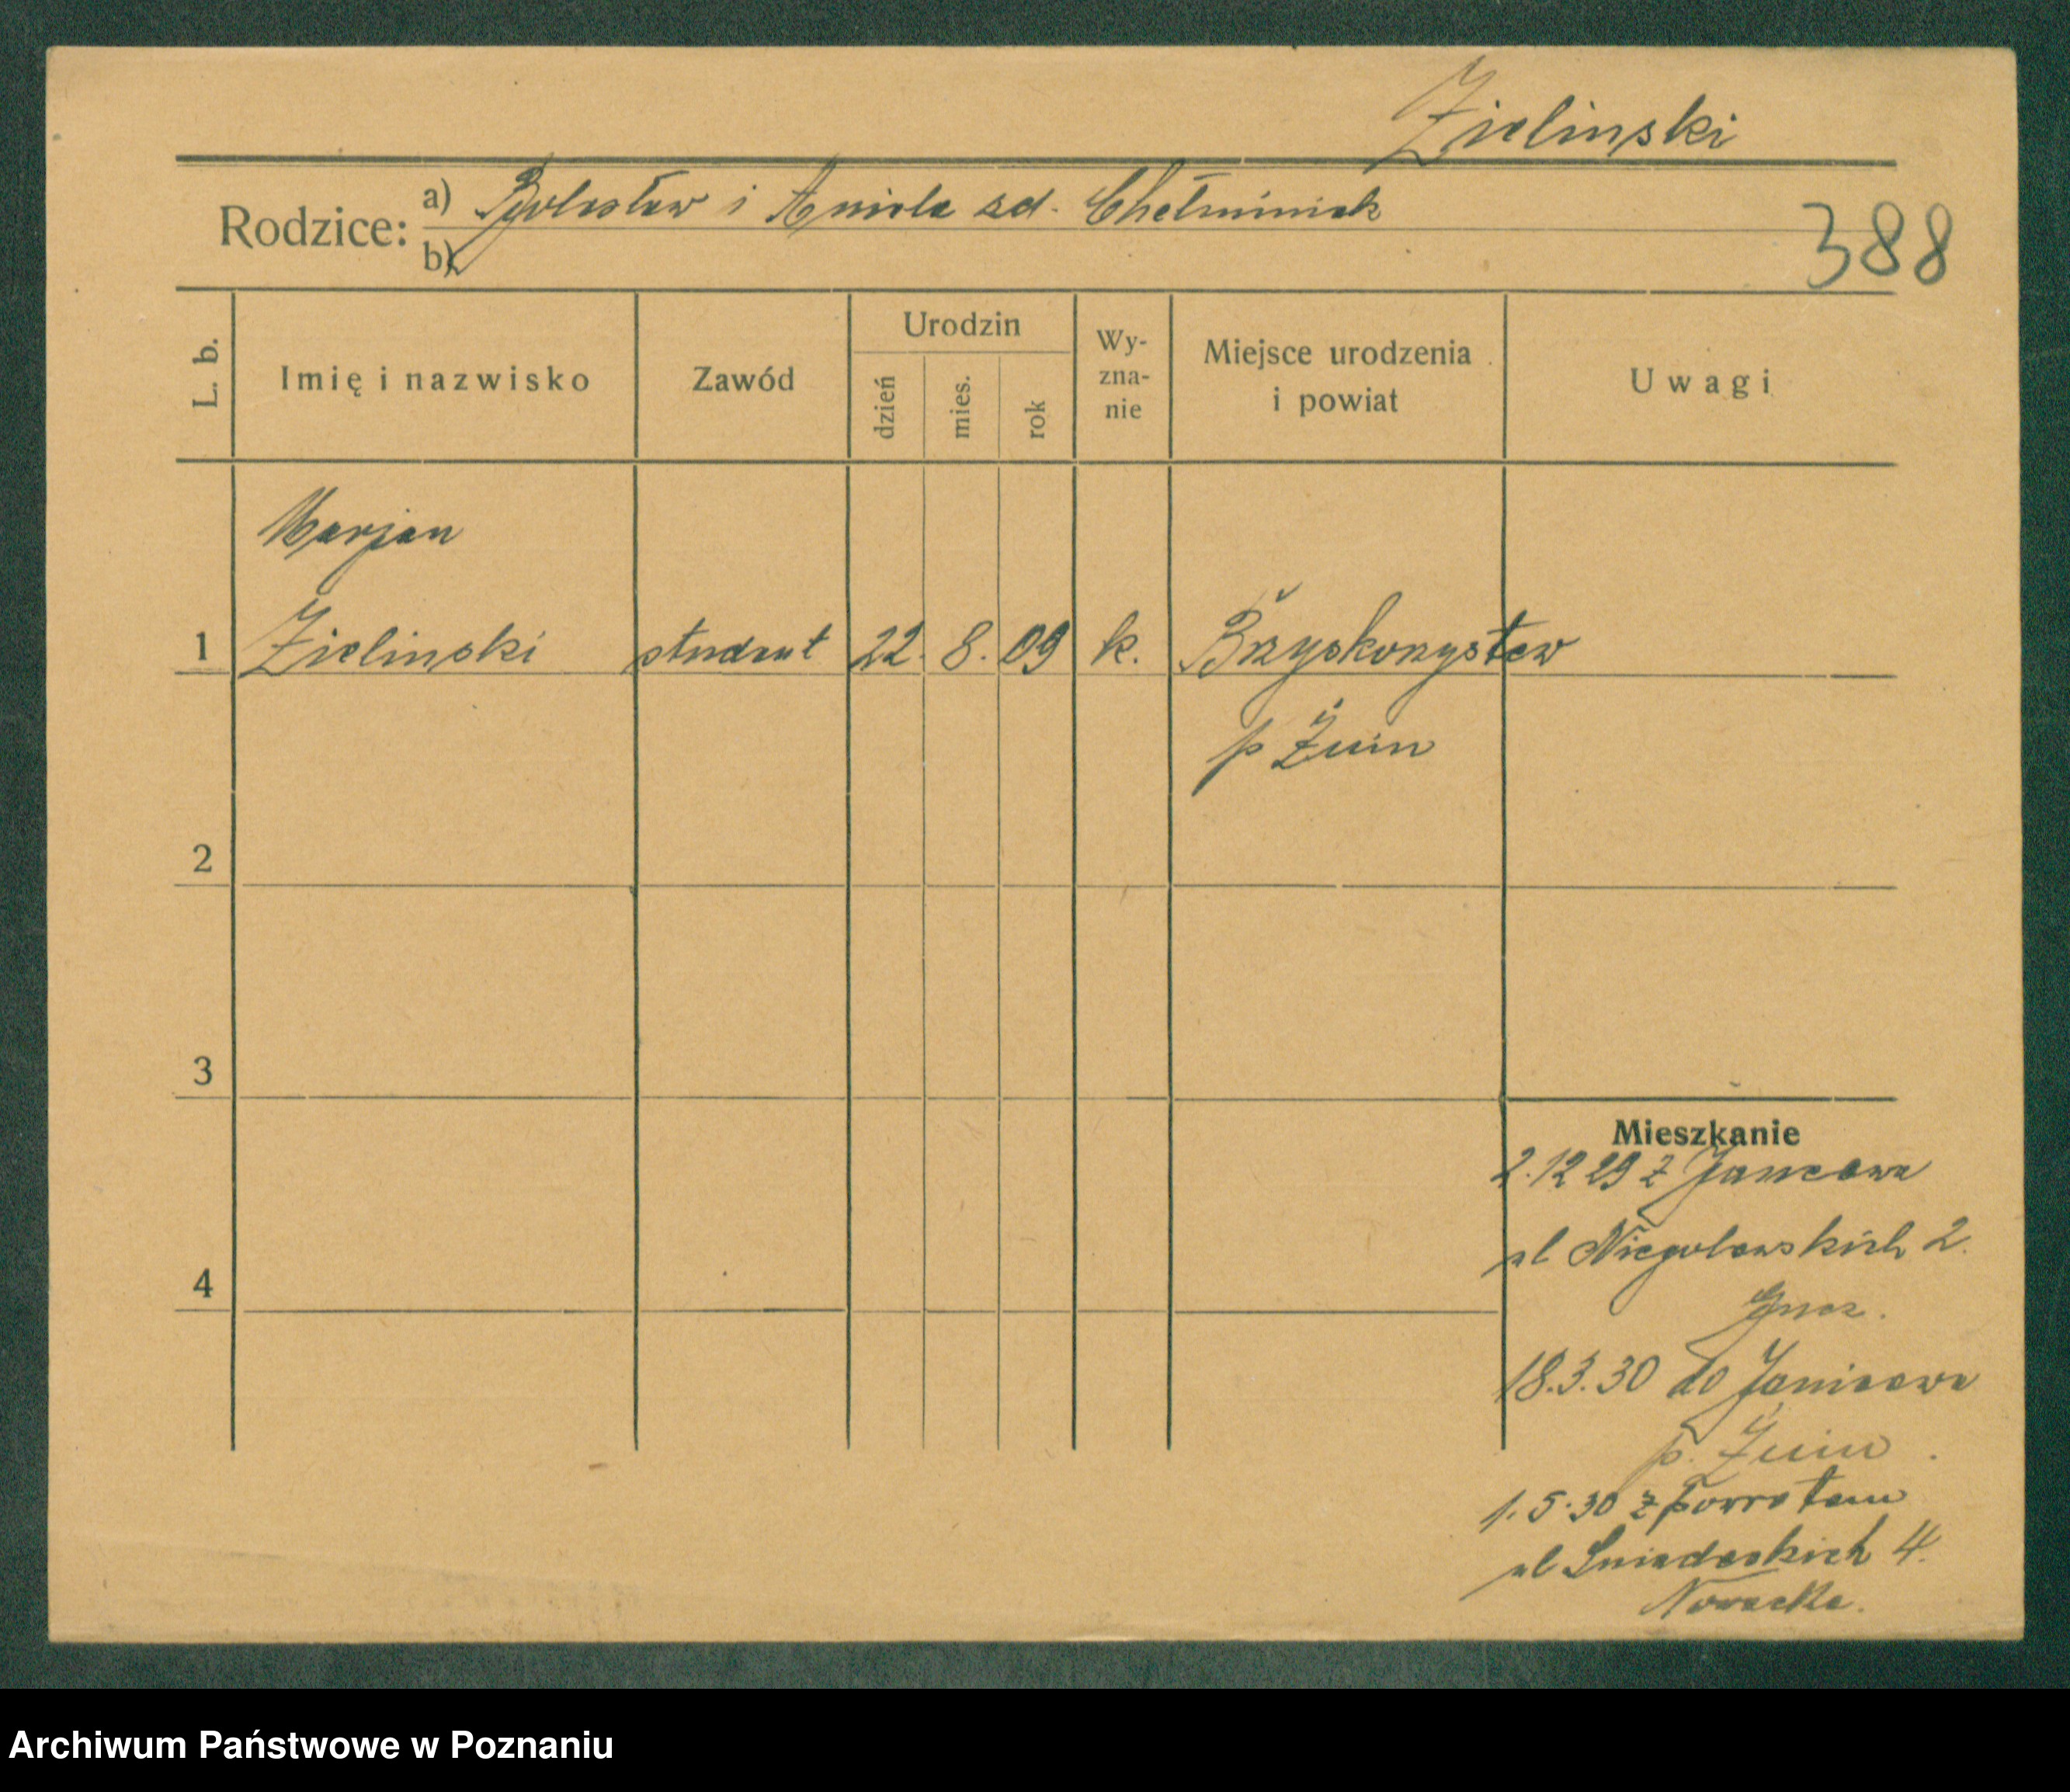 Zielinski
Rodzice: a) Bolesław i Aniela zd. Chełminiak
b)
388
L. b.
Imię i nazwisko
Zawód
Urodzin
dzień
mies.
rok
Wy-
zna-
nie
Miejsce urodzenia
i powiat
Uwagi
Marjan
1 Zielinski student 22. 8. 09 k. Brzyskorzystew
p Żnin
2
3
4
Mieszkanie
2.12 29 z Jancowa
ul Niegolewskich 2.
18.3.30 do Janicowa
p. Żnin
1.5.30 z powrotem
ul Sniadeckich 4.
Nowacka.
Archiwum Państwowe w Poznaniu